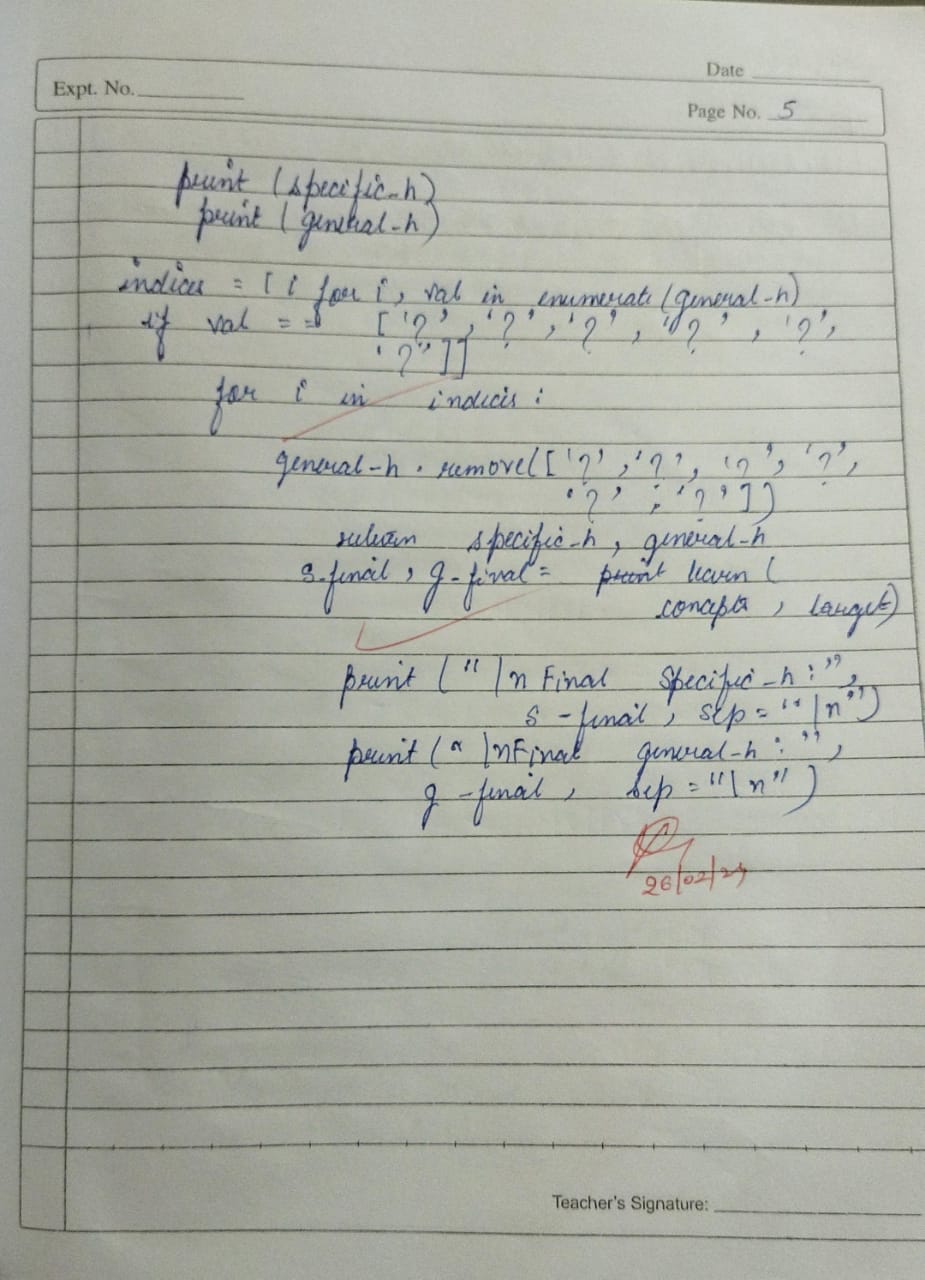 Date
Expt. No.
Page No. 5
print (specific-h)
print (general-h)
indices = [i for i, val in enumerate (general-h)
if val == ['?', '?', '?', '?', '?',
'?']]
for i in indices :
general-h . remove([ '?', '?', '?', '?',
'?' , '?'])
return specific-h , general-h
s-final , g-final = learn (
concepts , target)
print (" \n Final Specific-h : ",
s-final , sep = "\n")
print (" \nFinal general-h : ",
g-final , sep = "\n")
26/02/24
Teacher's Signature: